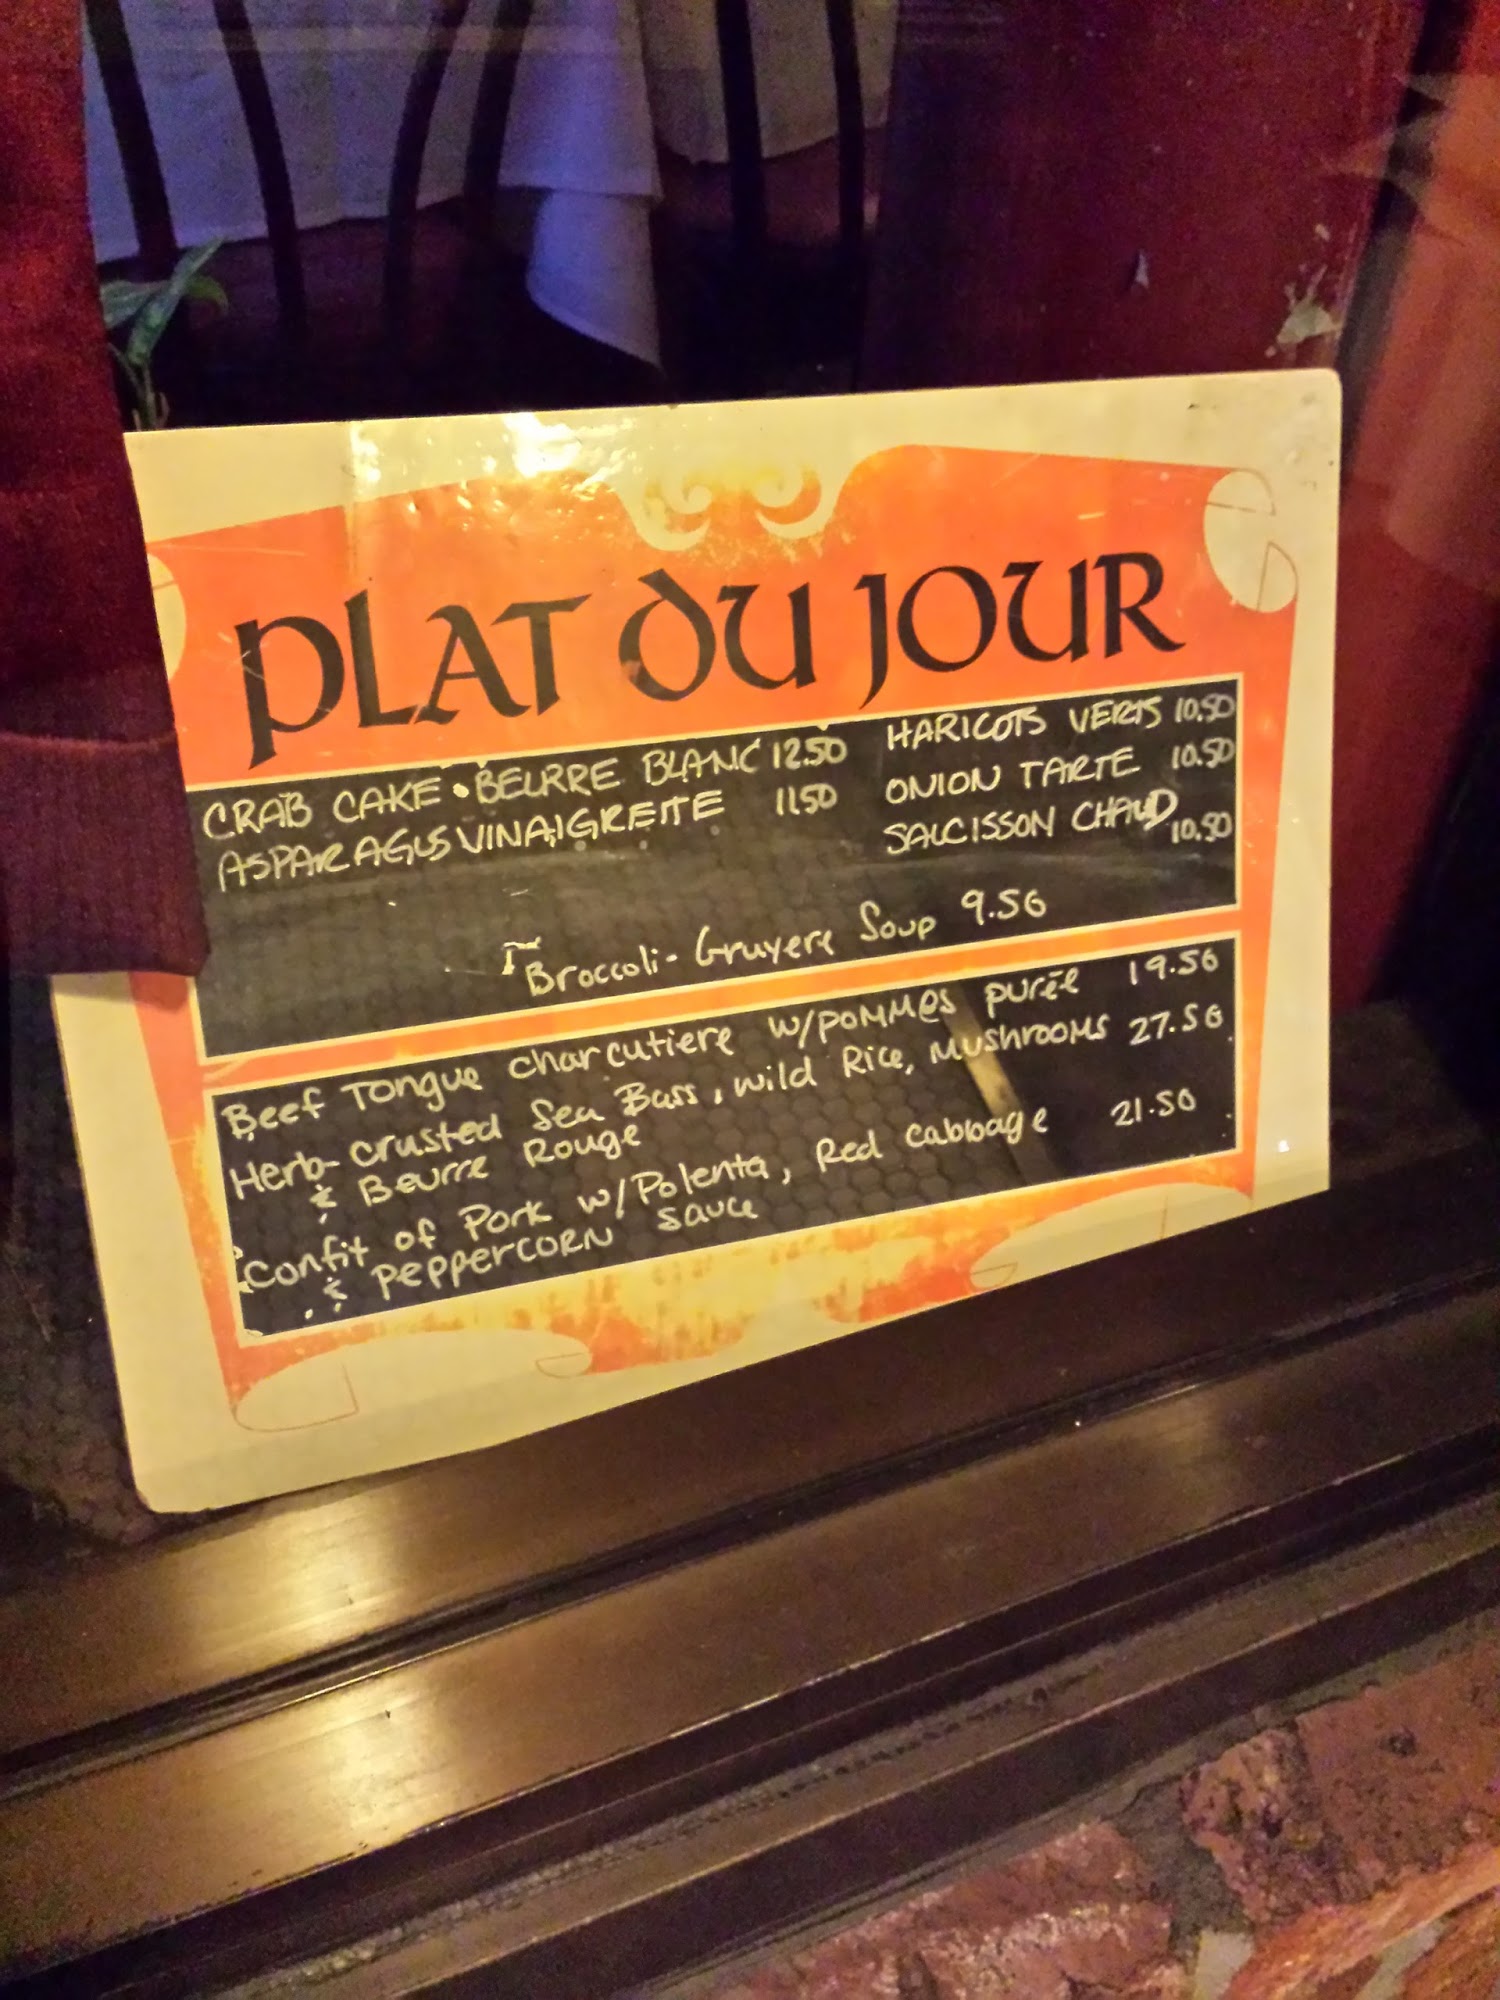 PLAT DU JOUR
CRAB CAKE · BEURRE BLANC 12.50
ASPARAGUS VINAIGRETTE 11.50
HARICOTS VERTS 10.50
ONION TARTE 10.50
SALCISSON CHAUD 10.50
Broccoli-Gruyere Soup 9.50
Beef Tongue charcutiere w/pommes purée 19.50
Herb-crusted Sea Bass, wild Rice, Mushrooms 27.50
& Beurre Rouge
Confit of Pork w/Polenta, Red cabbage 21.50
& PEPPERCORN sauce